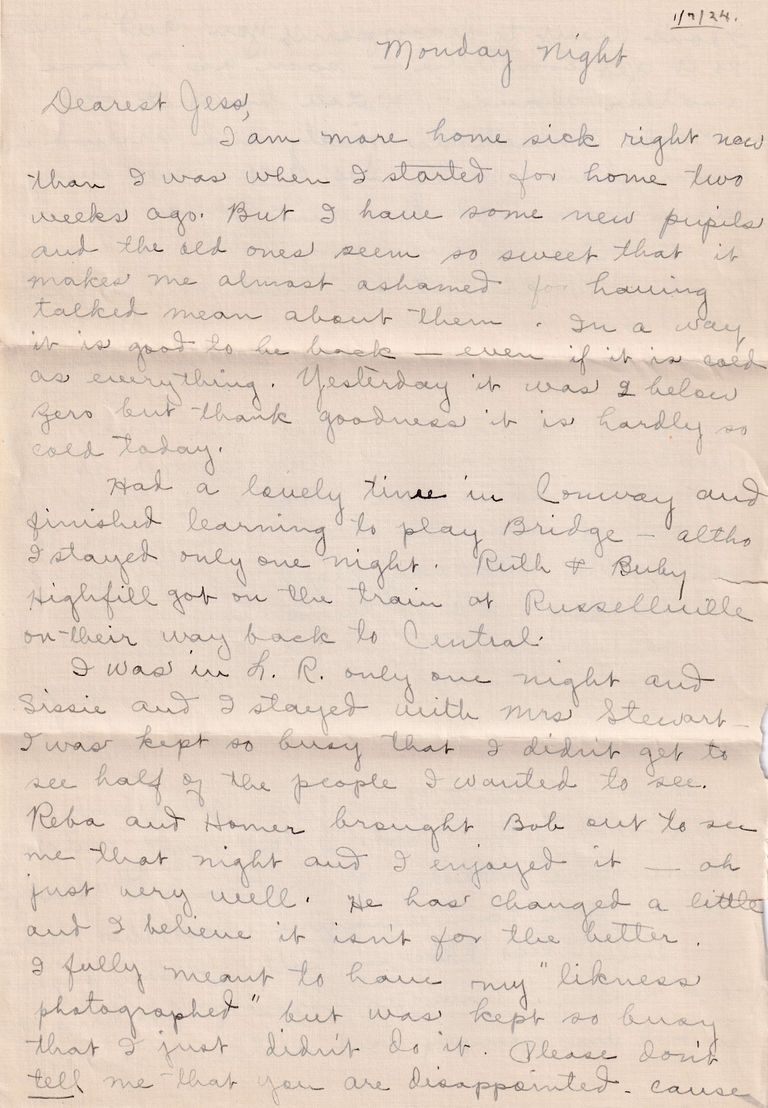 1/7/24.
Monday Night
Dearest Jess,
I am more home sick right now
than I was when I started for home two
weeks ago. But I have some new pupils
and the old ones seem so sweet that it
makes me almost ashamed for having
talked mean about them. In a way
it is good to be back — even if it is cold
as everything. Yesterday it was 2 below
zero but thank goodness it is hardly so
cold today.
Had a lovely time in Conway and
finished learning to play Bridge — altho
I stayed only one night. Ruth & Buby —
Highfill got on the train at Russellville
on their way back to Central.
I was in L. R. only one night and
Sissie and I stayed with Mrs Stewart —
I was kept so busy that I didn't get to
see half of the people I wanted to see.
Reba and Homer brought Bob out to see
me that night and I enjoyed it — oh
just very well. He has changed a little
and I believe it isn't for the better.
I fully meant to have my "likness
photographed" but was kept so busy
that I just didn't do it. Please don't
tell me that you are disappointed - cause